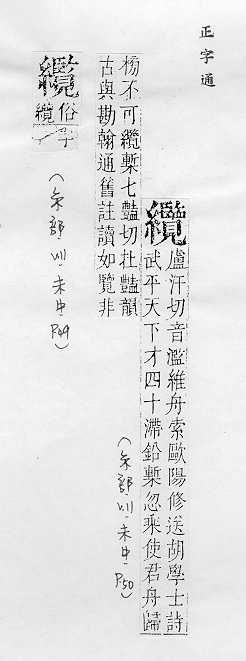 正字通
纜
盧汗切音濫維舟索歐陽修送胡學士詩
武平天下才四十滯鉛槧忽乘使君舟歸
榜不可纜槧七豔切豔韻
古與勘翰通舊註讀如覽非
(糸部·VII·未中·P50)
俗字
纜
(糸部·VII·未中·P49)